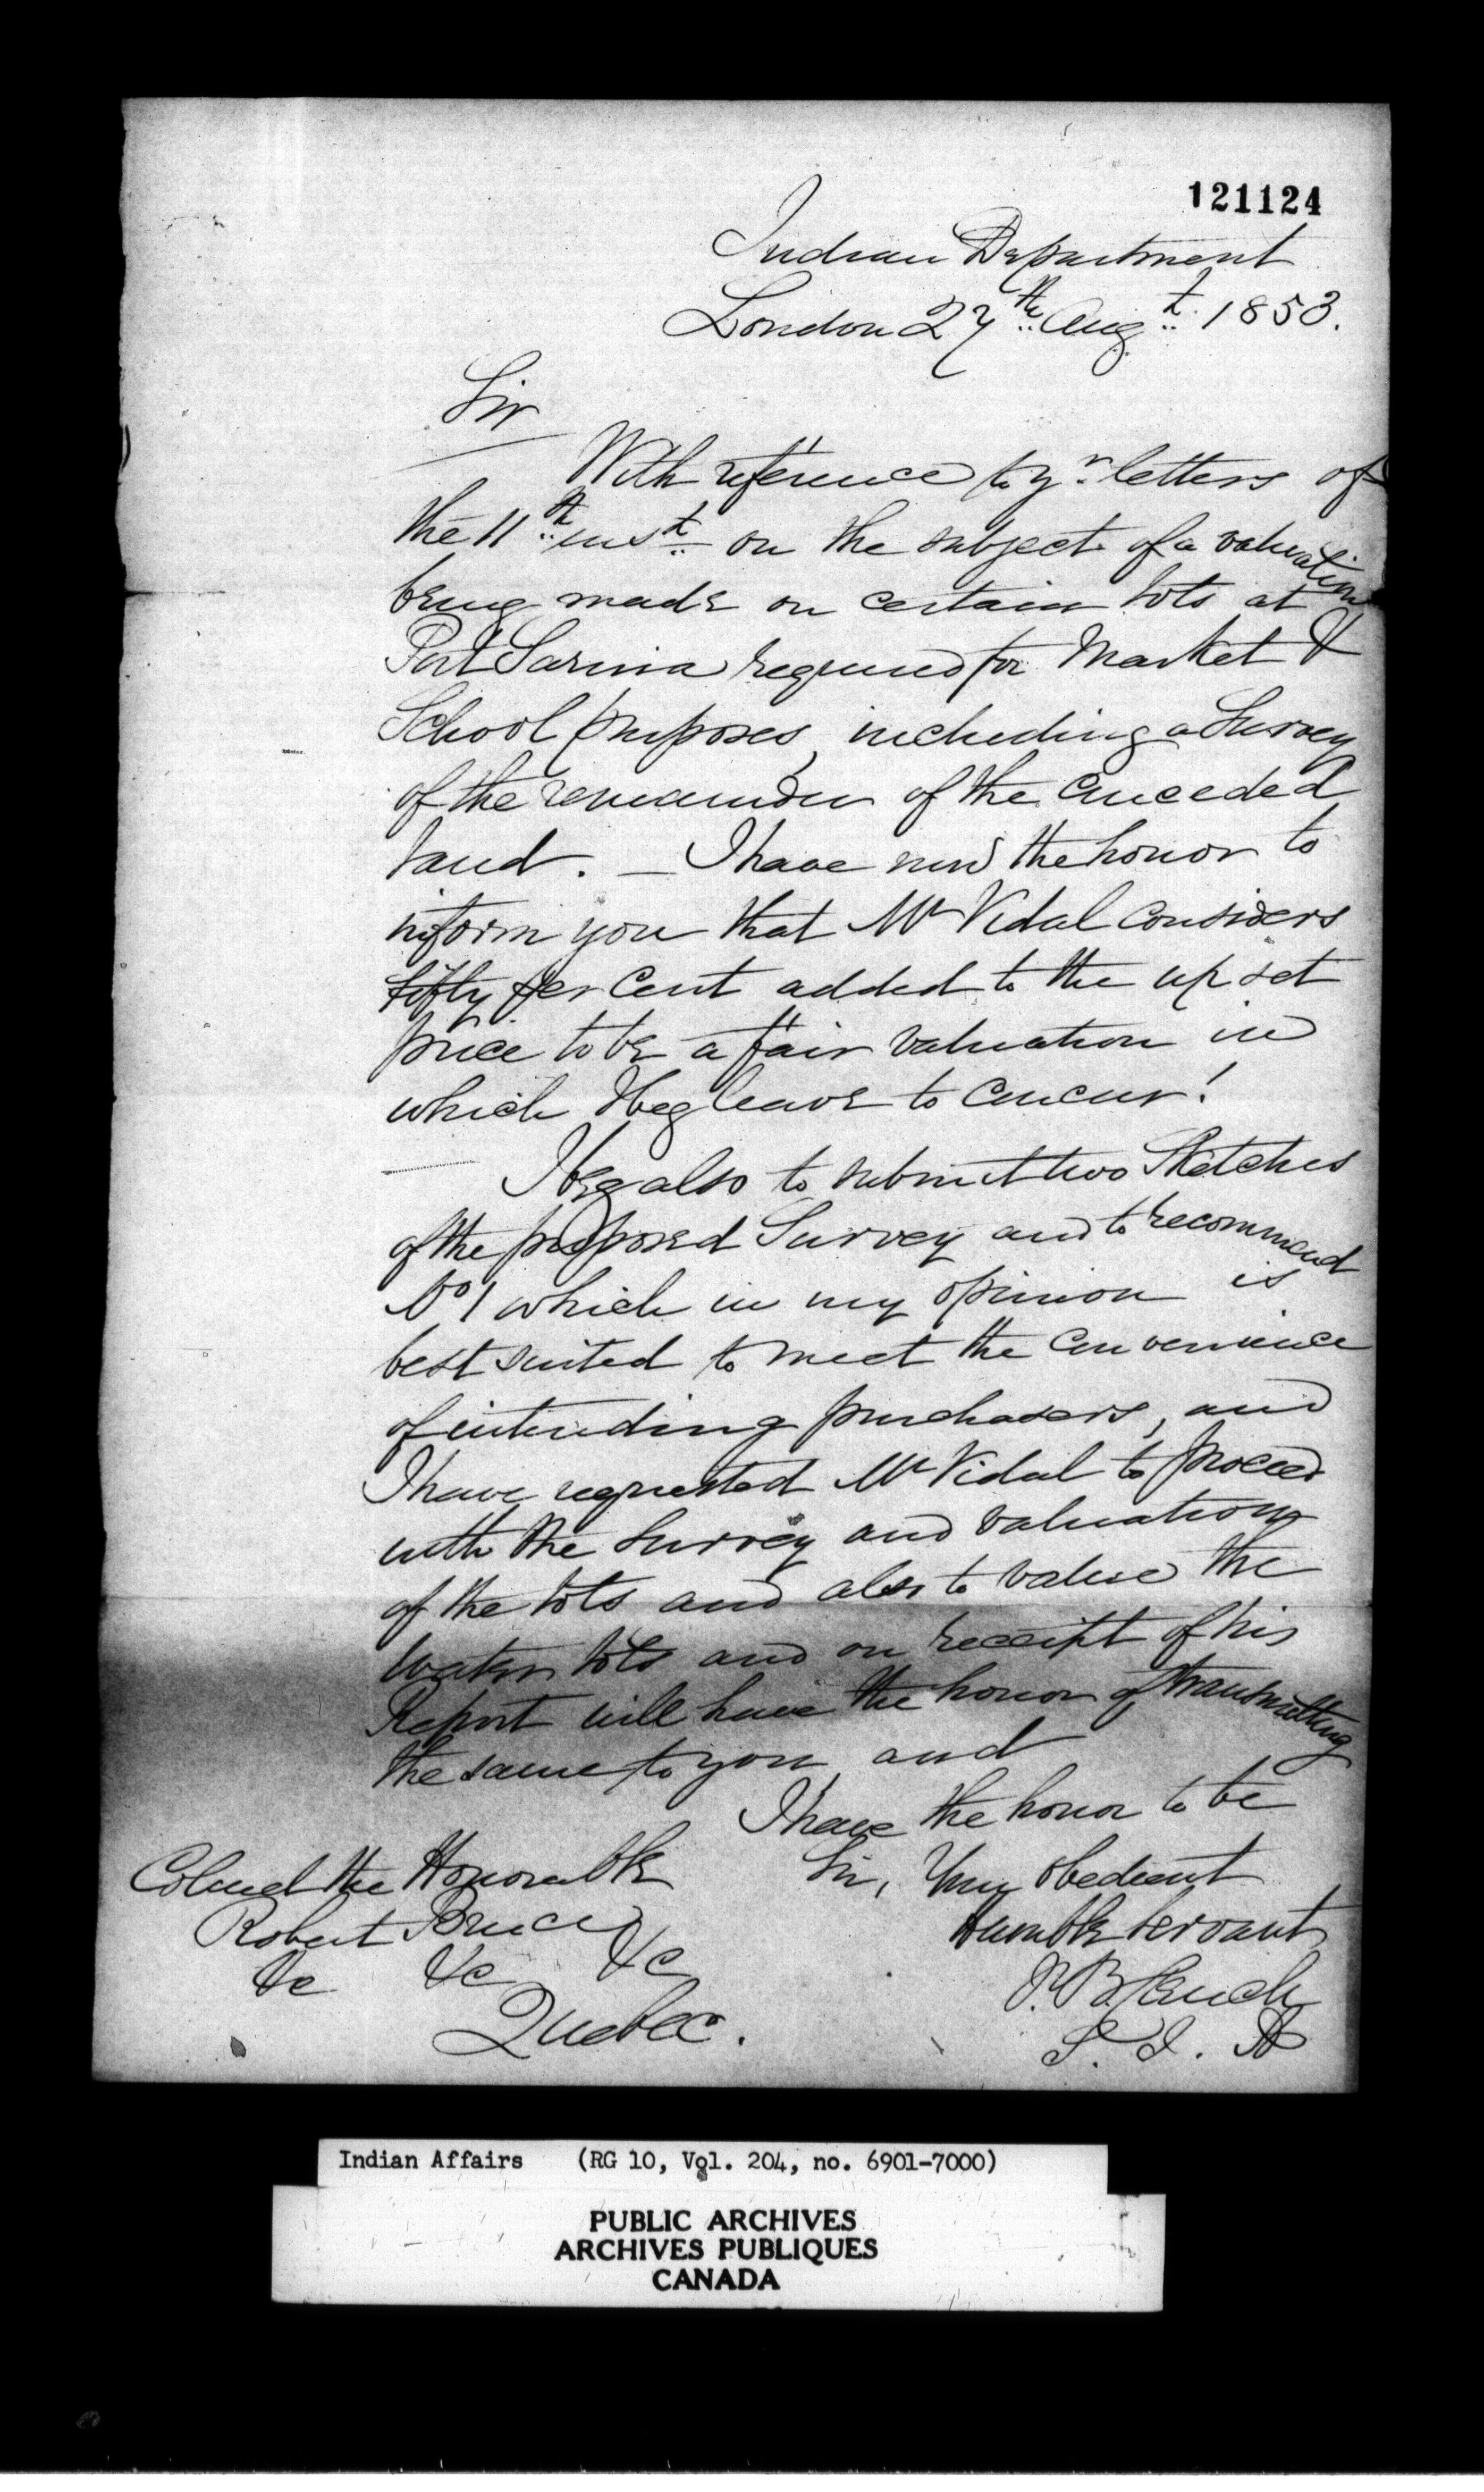 121124
Indian Department
London 27th Augt. 1853.
Sir
With reference to yr. letters of
the 11th inst. on the subject of a valuation
being made on certain lots at
Port Sarnia required for Market &
School purposes, including a Survey
of the remainder of the conceded
land. — I have now the honor to
inform you that Mr Vidal considers
fifty per Cent added to the upset
price to be a fair valuation in
which I beg leave to concur!
I beg also to submit two Sketches
of the proposed Survey and to recommend
No 1 which in my opinion is
best suited to meet the convenience
of intending purchasers, and
I have requested Mr Vidal to proceed
with the survey and valuation
of the lots and also to value the
water lots and on receipt of his
Report will have the honor of transmitting
the same to you, and
I have the honor to be
Sir, Your obedient
Humble Servant
Colonel the Honorable
Robert Bruce
&c &c &c
Quebec.
S. I. A
Indian Affairs (RG 10, Vol. 204, no. 6901-7000)
PUBLIC ARCHIVES
ARCHIVES PUBLIQUES
CANADA